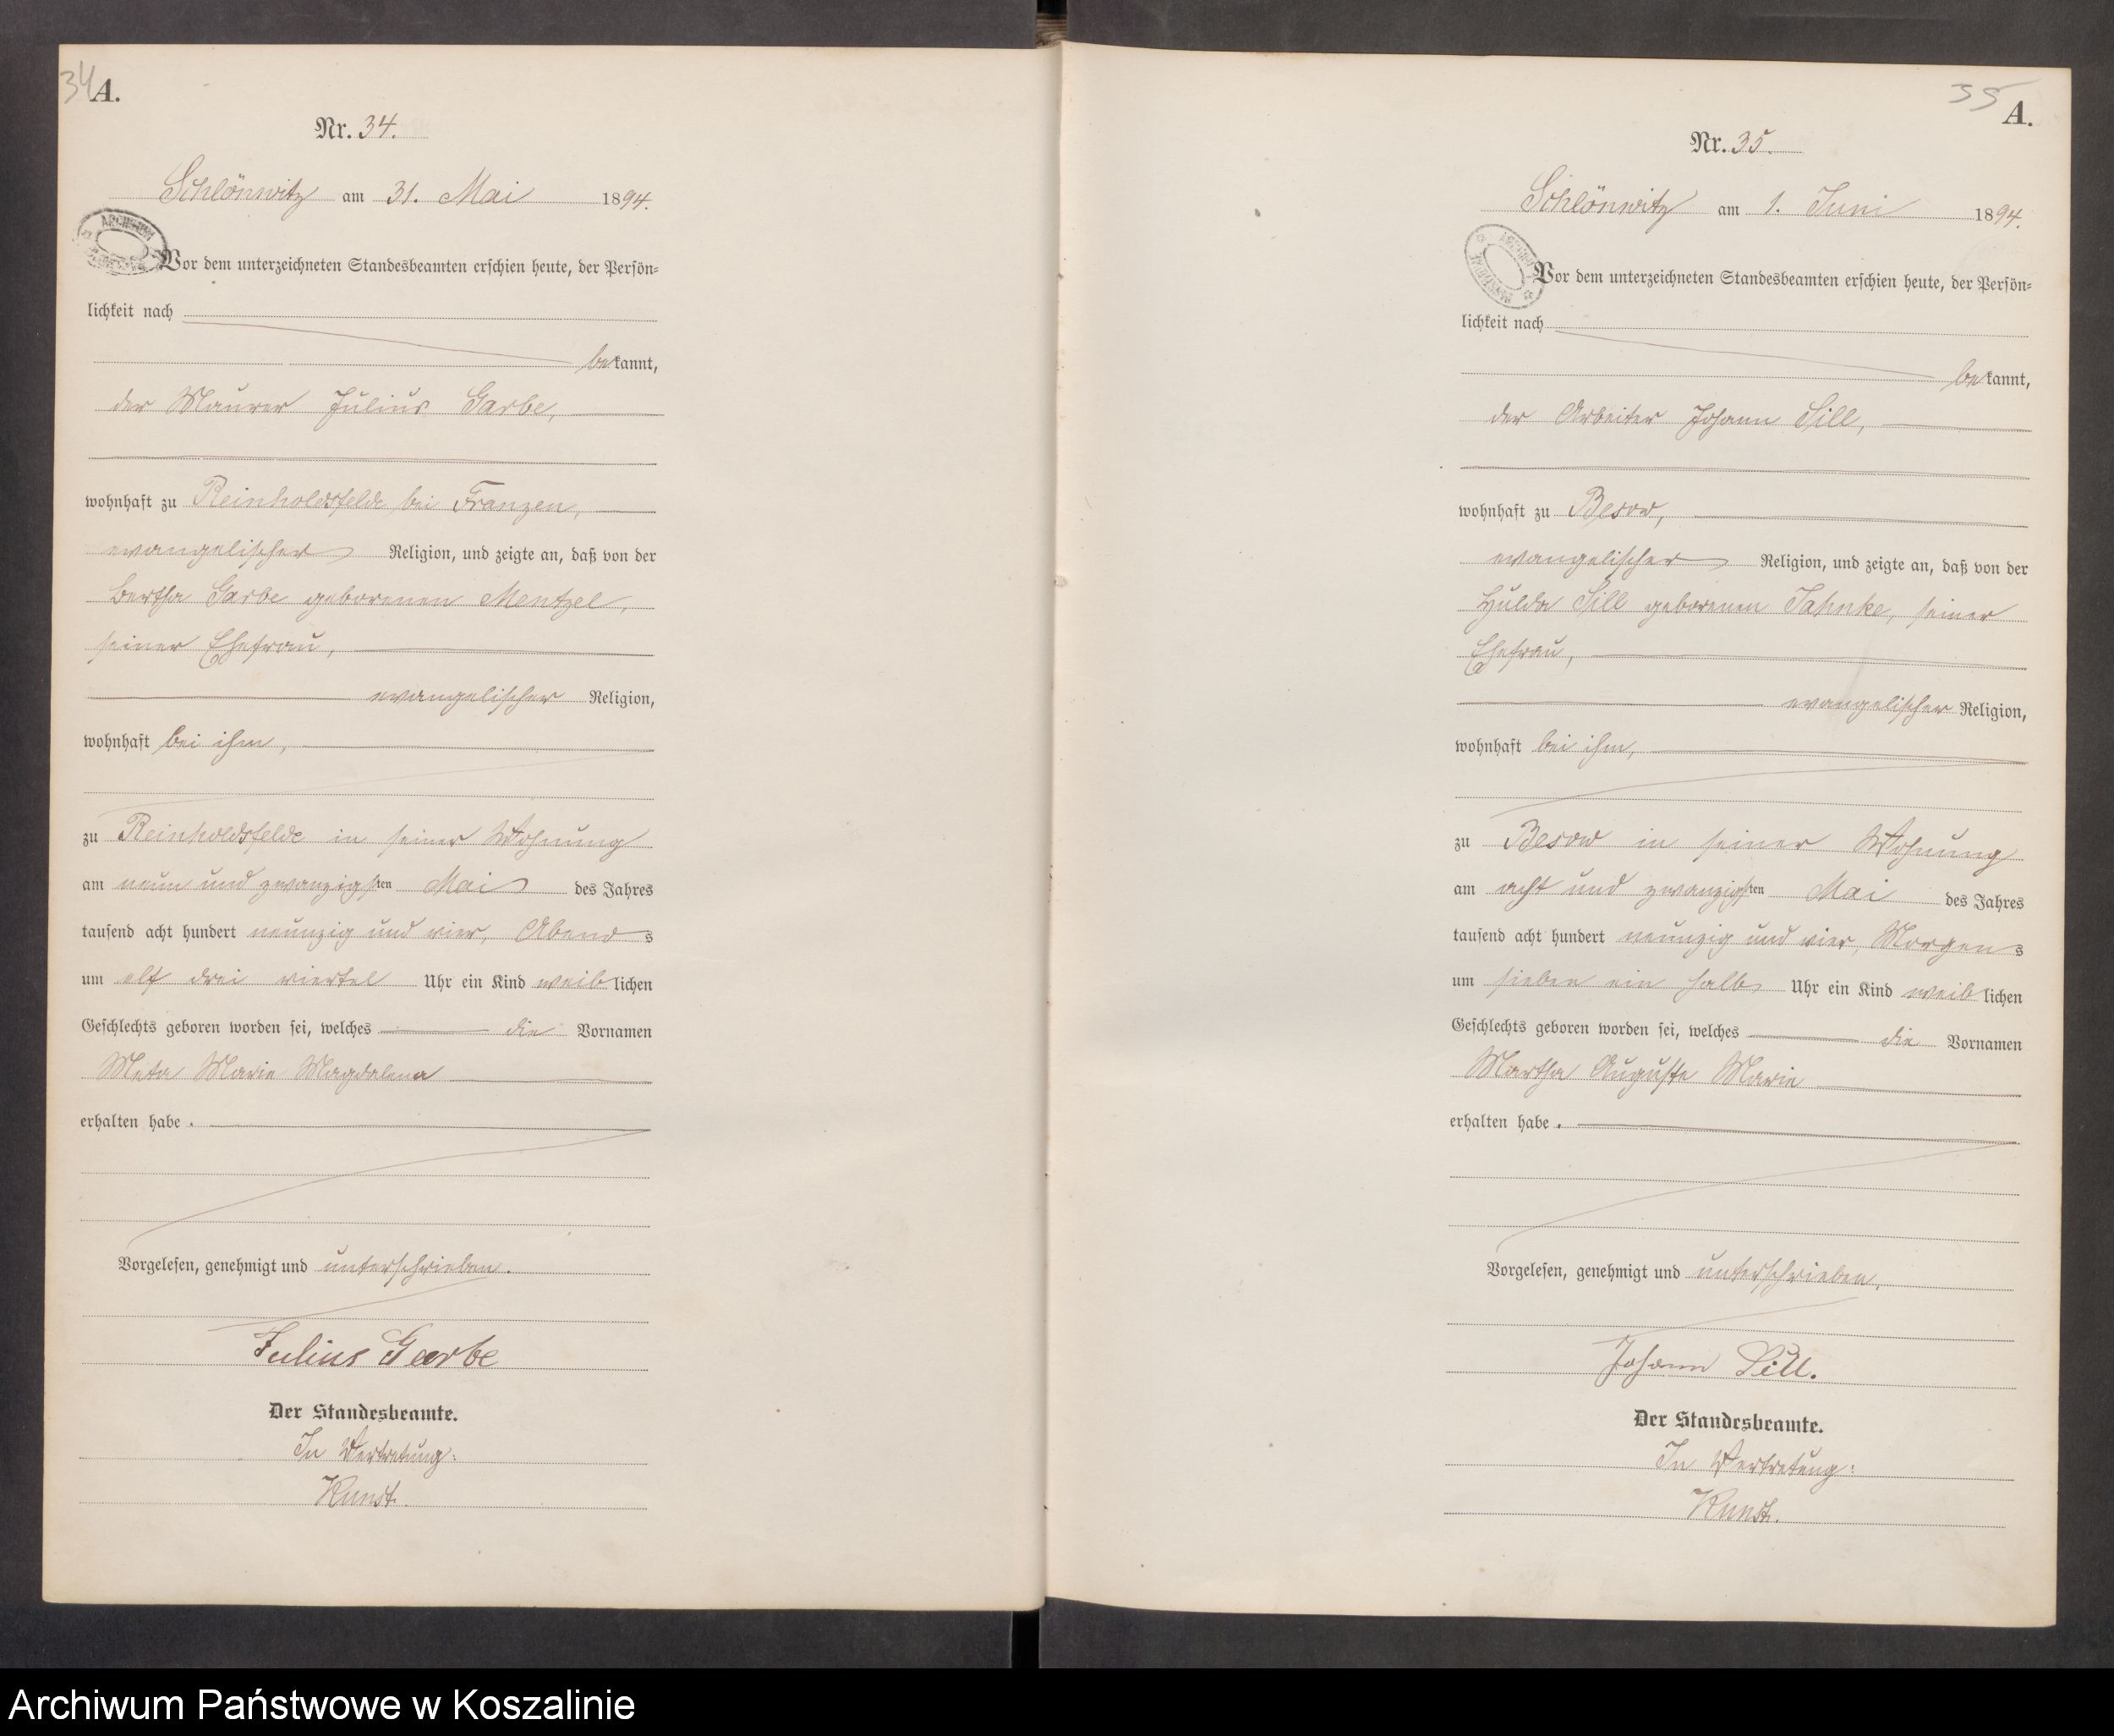 34
A.
Nr. 34.
Schlönwitz am 31. Mai 1894.
Vor dem unterzeichneten Standesbeamten erschien heute, der Persön-
lichkeit nach
bekannt,
der Maurer Julius Garbe,
wohnhaft zu Reinholdsfelde bei Franzen,
evangelischer Religion, und zeigte an, daß von der
Bertha Garbe geborenen Mentzel,
seiner Ehefrau,
evangelischer Religion,
wohnhaft bei ihm,
zu Reinholdsfelde in seiner Wohnung
am neun und zwanzigsten Mai des Jahres
tausend acht hundert neunzig und vier, Abends
um elf drei viertel Uhr ein Kind weiblichen
Geschlechts geboren worden sei, welches die Vornamen
Meta Marie Magdalena
erhalten habe.
Vorgelesen, genehmigt und unterschrieben.
Julius Garbe
Der Standesbeamte.
In Vertretung:
Kunst.
35
A.
Nr. 35.
Schlönwitz am 1. Juni 1894.
ARCHIWUM
Vor dem unterzeichneten Standesbeamten erschien heute, der Persön-
lichkeit nach
bekannt,
der Arbeiter Johann Sill,
wohnhaft zu Besow,
evangelischer Religion, und zeigte an, daß von der
Hulda Sill geborenen Jahnke, seiner
Ehefrau,
evangelischer Religion,
wohnhaft bei ihm,
zu Besow in seiner Wohnung
am acht und zwanzigsten Mai des Jahres
tausend acht hundert neunzig und vier, Morgens
um sieben ein halb Uhr ein Kind weiblichen
Geschlechts geboren worden sei, welches die Vornamen
Martha Auguste Marie
erhalten habe.
Vorgelesen, genehmigt und unterschrieben.
Johann Sill.
Der Standesbeamte.
In Vertretung:
Kunst.
Archiwum Państwowe w Koszalinie